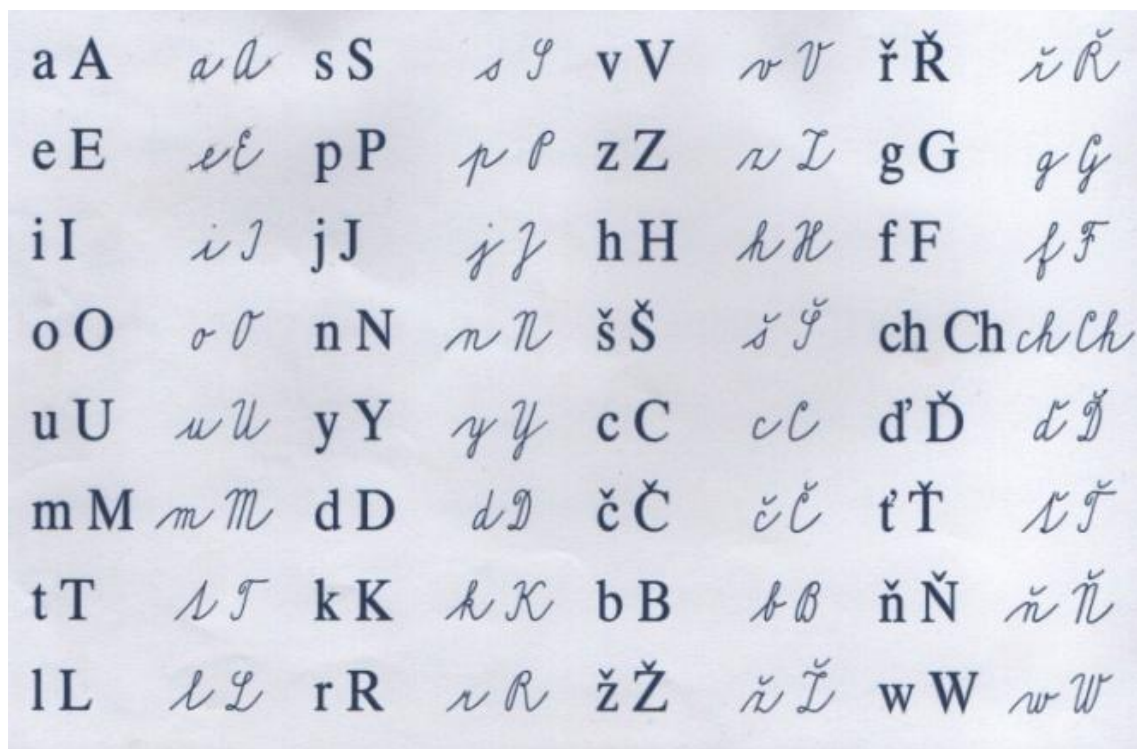 a A a A s S s S v V v V ř Ř ř Ř
e E e E p P p P z Z z Z g G g G
i I i I j J j J h H h H f F f F
o O o O n N n N š Š š Š ch Ch ch Ch
u U u U y Y y Y c C c C ď Ď ď Ď
m M m M d D d D č Č č Č ť Ť ť Ť
t T t T k K k K b B b B ň Ň ň Ň
l L l L r R r R ž Ž ž Ž w W w W